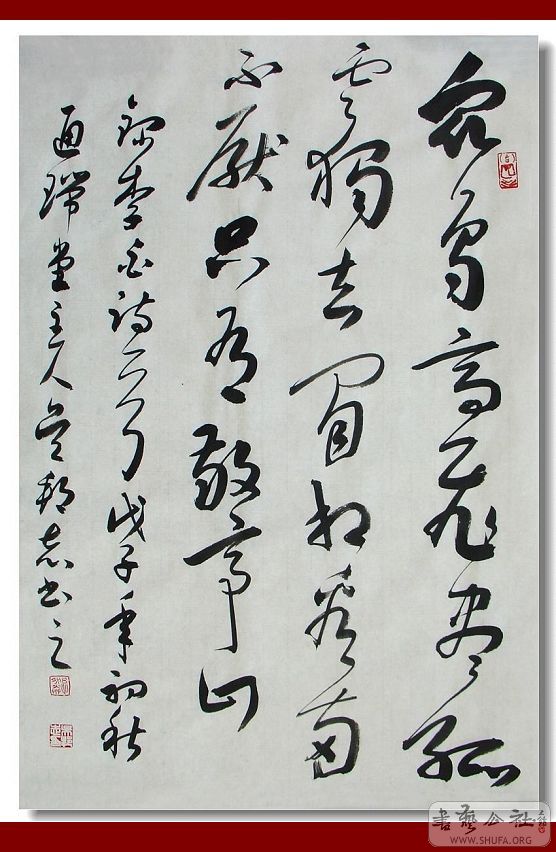 眾鳥高飛盡孤
雲獨去閒相看兩
不厭只有敬亭山
錄李白詩一首戊子年初秋
瑞堂主人吳邦志書之
書藝公社
WWW.SHUFA.ORG